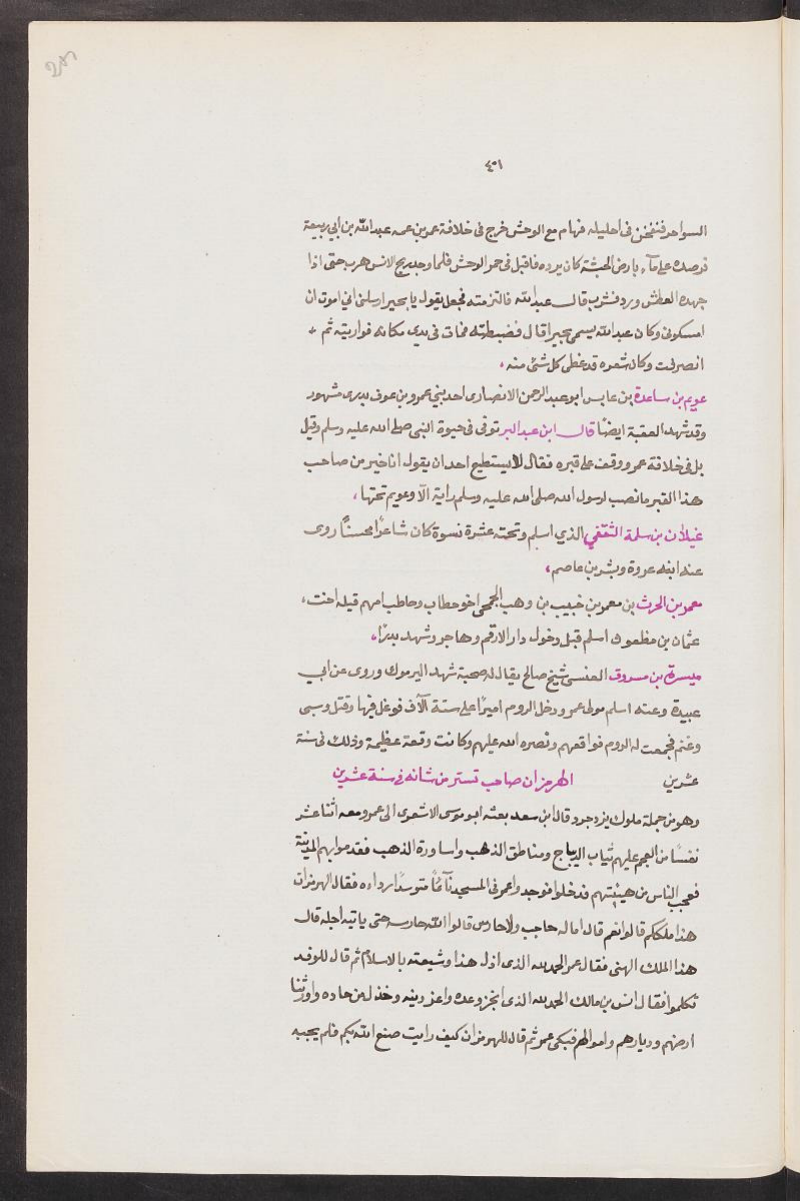 ٤٠١
السواحر فنفخن في احليله فهام مع الوحش خرج في خلافة عمر بن عمه عبدالله بن ابي ربيعة
فرصده على مآء بارض الحبشة كان يرده فاقبل في حمر الوحش فلما وجد ريح الانس هرب حتى اذا
جهده العطش ورد فشرب قال عبدالله فالتزمته فجعل يقول يا بحير ارسلني اني اموت ان
امسكوني وكان عبدالله يسمى بحيرا قال فضبطته فمات في يدي مكانه فواريته ثم
انصرفت وكان شعره قد غطى كل شئ منه
عويم بن ساعدة بن عابس ابو عبد الرحمن الانصاري احد بني عمرو بن عوف بدري مشهور
وقد شهد العقبة ايضًا قال ابن عبد البر توفي في حيوة النبي صلى الله عليه وسلم وقيل
بل في خلافة عمر ووقف على قبره فقال لا يستطيع احد ان يقول انا خير من صاحب
هذا القبر ما نصب لرسول الله صلى الله عليه وسلم راية الّا وعويم تحتها
غيلان بن سلمة الثقفي الذي اسلم وتحته عشرة نسوة كان شاعرًا محسنًا روى
عنه ابنه عروة وبشر بن عاصم
معمر بن الحرث بن معمر بن خبيب بن وهب الجمحى اخو حطاب وحاطب امهم قيله اخت
عثمان بن مظعون اسلم قبل دخول دار الارقم وهاجر وشهد بدرًا
ميسرة بن مسروق العنسي شيخ صالح يقال له صحبة شهد اليرموك وروى عن ابي
عبيدة وعنه اسلم مولى عمر ودخل الروم اميرًا على ستة آلاف فوغل فيها وقتل وسبى
وغنم فجمعت له الروم فواقعهم ونصره الله عليهم وكانت وقعة عظيمة وذلك في سنة
عشرين الهرمزان صاحب تستر من شانه في سنة عشرين
وهو من جملة ملوك يزدجرد قال ابن سعد بعثه ابو موسى الاشعري الى عمر ومعه اثنا عشر
نفسًا من العجم عليهم ثياب الديباج ومناطق الذهب واساورة الذهب فقدموا بهم المدينة
فعجب الناس من هيئتهم فدخلوا فوجدوا عمر في المسجد نآئمًا متوسدًا رداءه فقال الهرمزان
هذا ملككم قالوا نعم قال اما له حاجب ولا حارس قالوا الله حارسه حتى ياتيه اجله قال
هذا الملك الهني فقال عمر الحمد لله الذي اذل هذا وشيعته بالاسلام ثم قال للوفد
تكلموا فقال انس بن مالك الحمد لله الذي انجز وعده واعز دينه وخذل من حاده واورثنا
ارضهم وديارهم واموالهم فبكى عمر ثم قال للهرمزان كيف رايت صنع الله بكم فلم يجبه